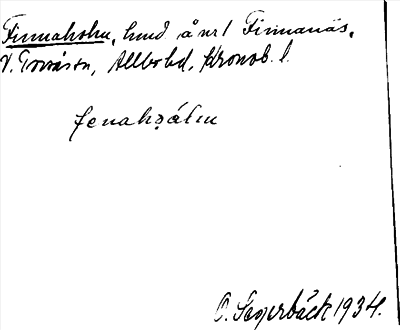 Finnaholm, lund å nr 1 Finnanäs,
V. Torsås sn, Allbo hd, Kronob. l.
fenahålm
O. Sagerbäck 1934.